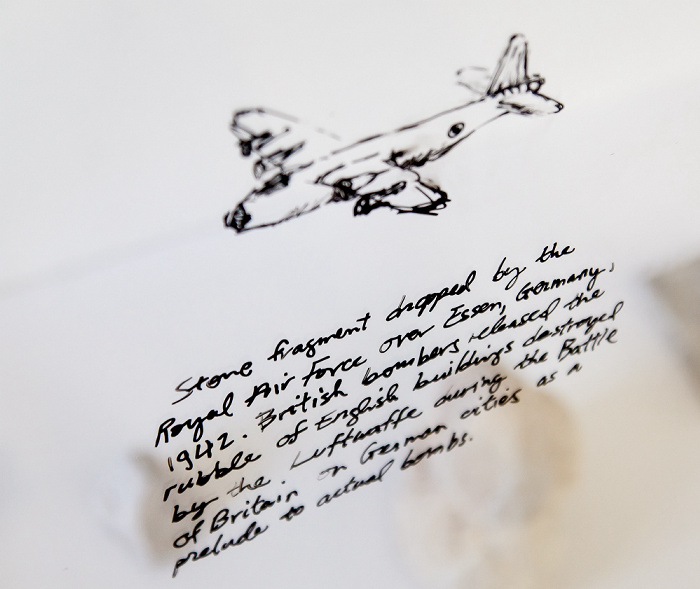 Stone fragment dropped by the
Royal Air Force over Essen, Germany,
1942. British bombers released the
rubble of English buildings destroyed
by the Luftwaffe during the Battle
of Britain on German cities as a
prelude to actual bombs.